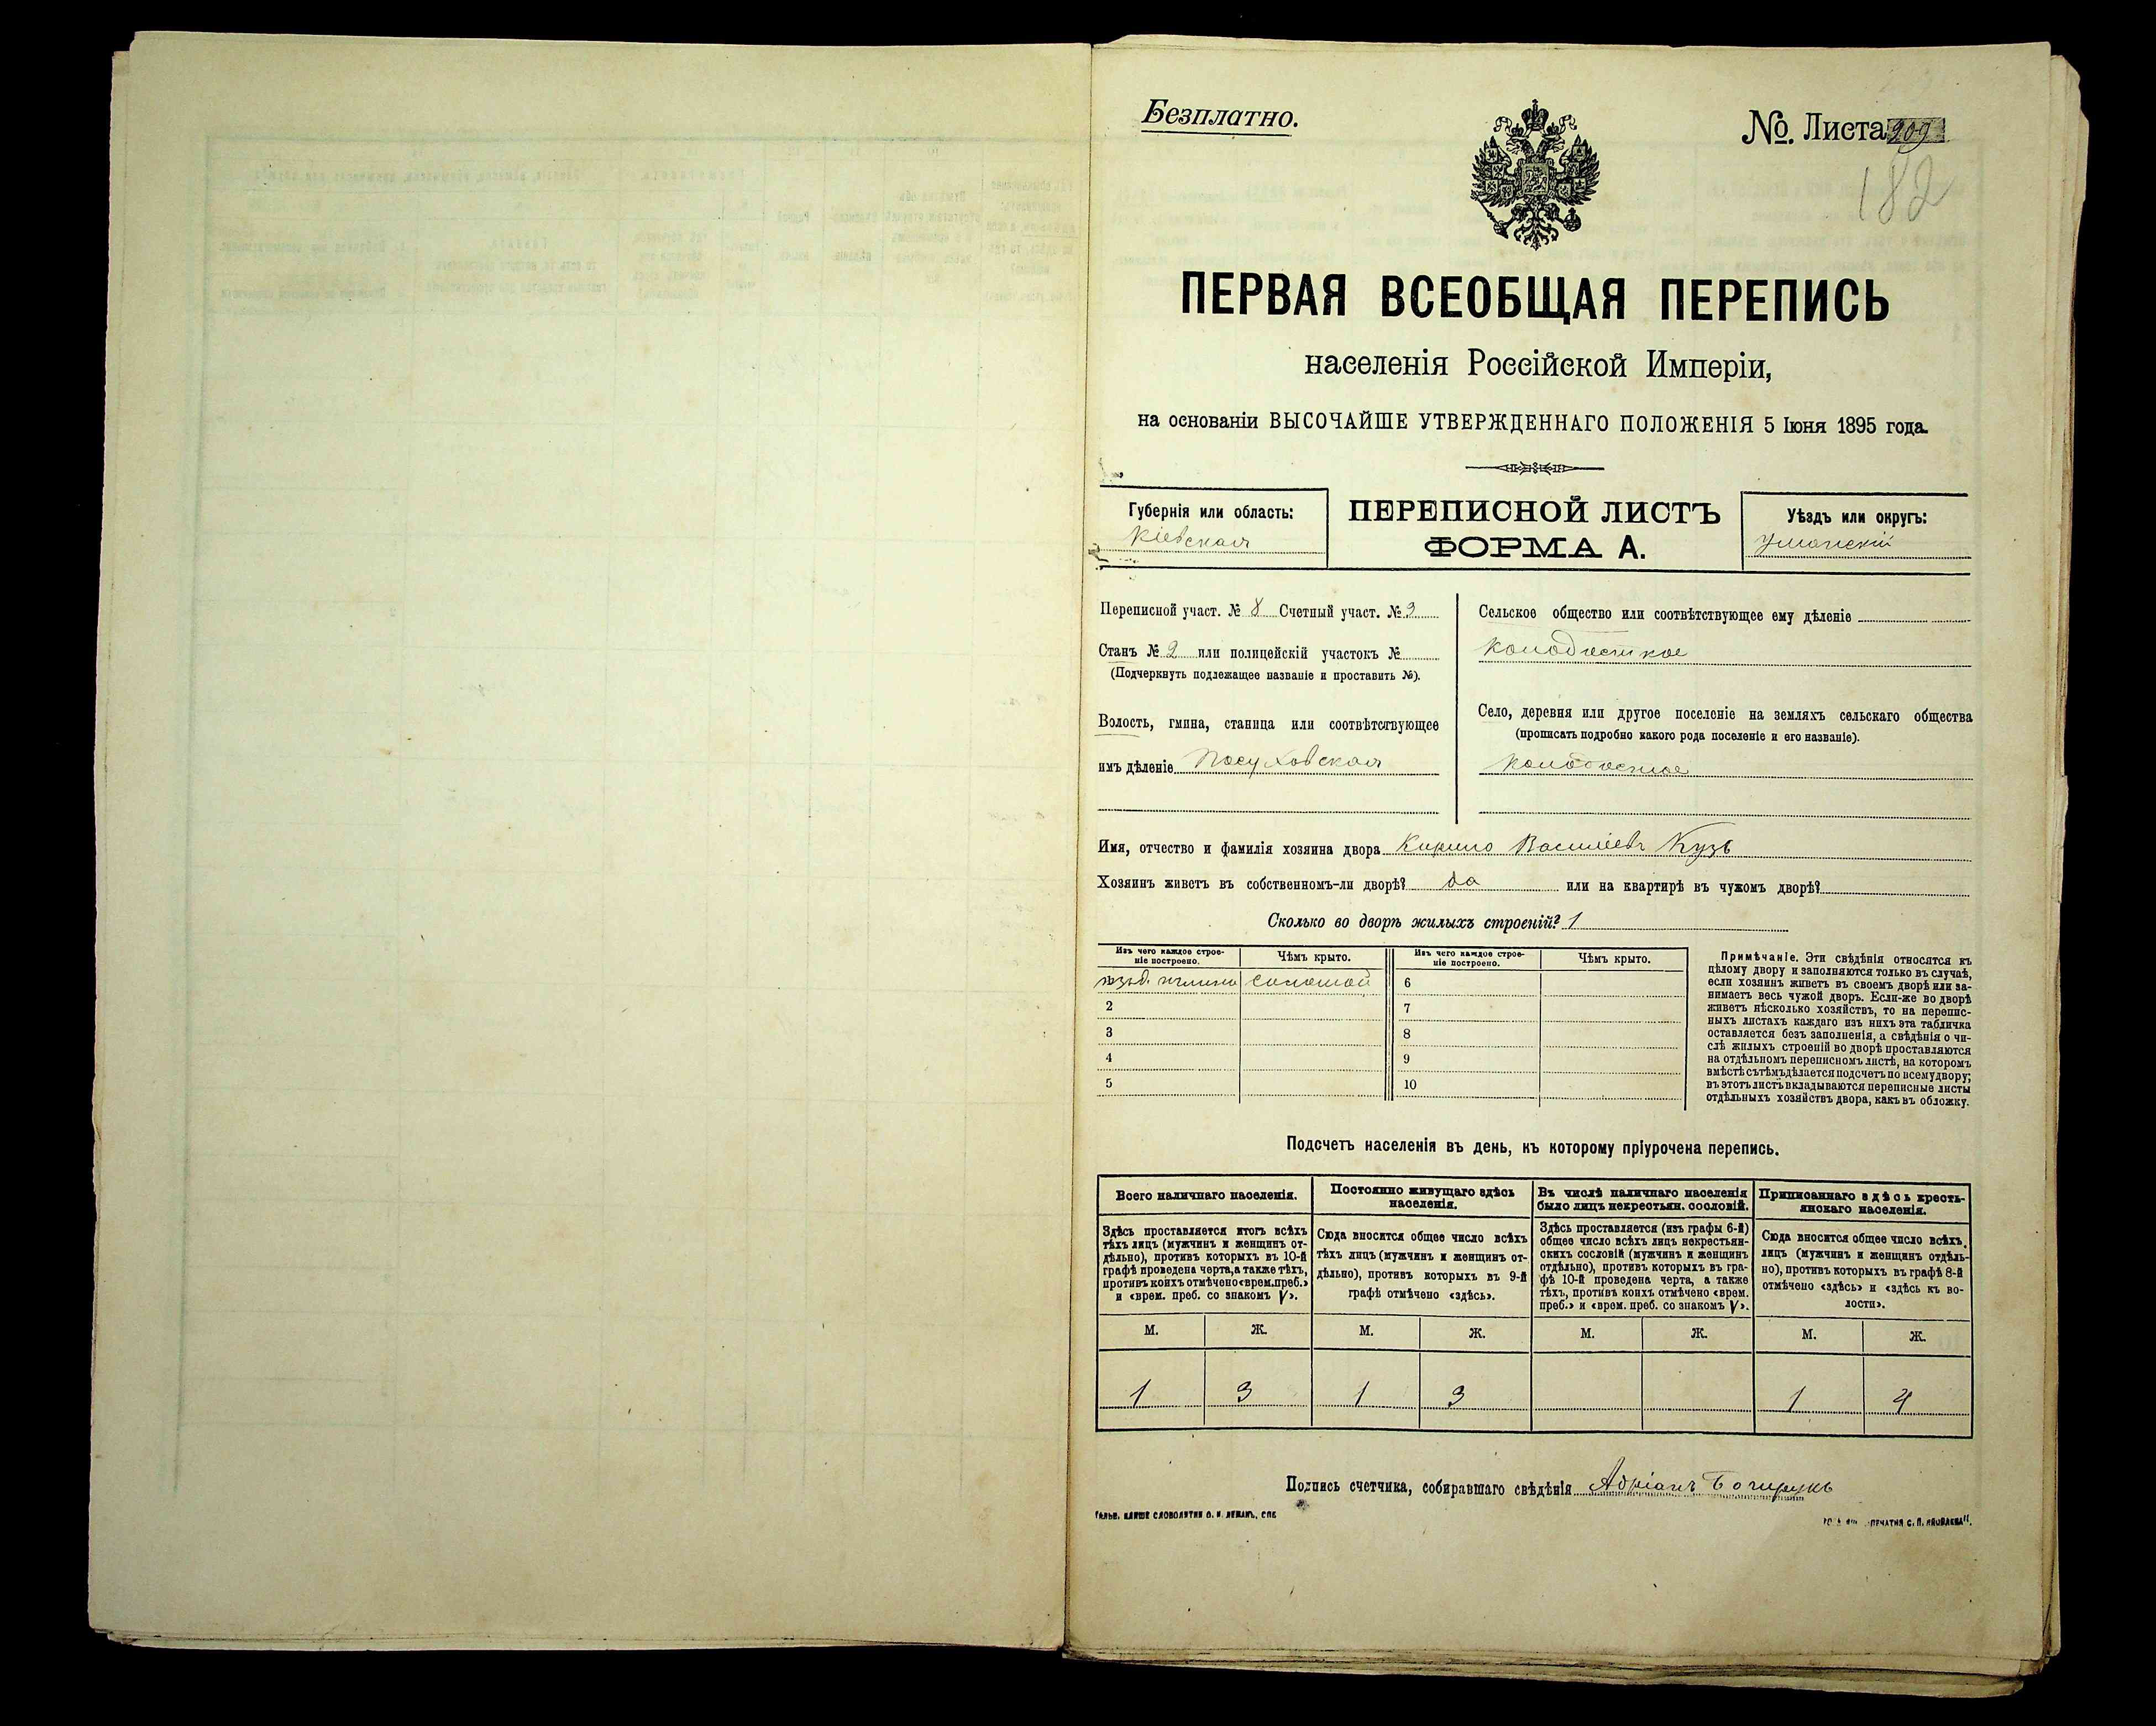 Безплатно.
№. Листа 209
182
ПЕРВАЯ ВСЕОБЩАЯ ПЕРЕПИСЬ
населенія Россійской Имперіи,
на основаніи ВЫСОЧАЙШЕ УТВЕРЖДЕННАГО ПОЛОЖЕНІЯ 5 Іюня 1895 года.
Губернія или область:
Кіевская
ПЕРЕПИСНОЙ ЛИСТЪ
ФОРМА А.
Уѣздъ или округъ:
Уманскій
Переписной участ. № 8 Счетный участ. № 3
Станъ № 2 или полицейскій участокъ №
(Подчеркнуть подлежащее названіе и проставить №).
Волость, гмина, станица или соотвѣтствующее
имъ дѣленіе Посуховская
Сельское общество или соотвѣтствующее ему дѣленіе
Колодистое
Село, деревня или другое поселеніе на земляхъ сельскаго общества
(прописать подробно какого рода поселеніе и его названіе).
Колодистое
Имя, отчество и фамилія хозяина двора Кирило Василіевъ Кузь
Хозяинъ живетъ въ собственномъ-ли дворѣ? да или на квартирѣ въ чужомъ дворѣ?
Сколько во дворѣ жилыхъ строеній? 1
Изъ чего каждое строе-
ніе построено.
Чѣмъ крыто.
Изъ чего каждое строе-
ніе построено.
Чѣмъ крыто.
соломой
6
2
7
3
8
4
9
5
10
Примѣчаніе. Эти свѣдѣнія относятся къ
цѣлому двору и заполняются только въ случаѣ,
если хозяинъ живетъ въ своемъ дворѣ или за-
нимаетъ весь чужой дворъ. Если-же во дворѣ
живетъ нѣсколько хозяйствъ, то на перепис-
ныхъ листахъ каждаго изъ нихъ эта табличка
оставляется безъ заполненія, а свѣдѣнія о чи-
слѣ жилыхъ строеній во дворѣ проставляются
на отдѣльномъ переписномъ листѣ, на которомъ
вмѣстѣ съ тѣмъ дѣлается подсчетъ по всему двору;
въ этотъ листъ вкладываются переписные листы
отдѣльныхъ хозяйствъ двора, какъ въ обложку.
Подсчетъ населенія въ день, къ которому пріурочена перепись.
Всего наличнаго населенія.
Здѣсь проставляется итогъ всѣхъ
тѣхъ лицъ (мужчинъ и женщинъ от-
дѣльно), противъ которыхъ въ 10-й
графѣ проведена черта, а также тѣхъ,
противъ коихъ отмѣчено «врем. преб.»
и «врем. преб. со знакомъ V».
Постоянно живущаго здѣсь
населенія.
Сюда вносится общее число всѣхъ
тѣхъ лицъ (мужчинъ и женщинъ от-
дѣльно), противъ которыхъ въ 9-й
графѣ отмѣчено «здѣсь».
Въ числѣ наличнаго населенія
было лицъ некрестьян. сословій.
Здѣсь проставляется (изъ графы 6-й)
общее число всѣхъ лицъ некрестьян-
скихъ сословій (мужчинъ и женщинъ
отдѣльно), противъ которыхъ въ гра-
фѣ 10-й проведена черта, а также
тѣхъ, противъ коихъ отмѣчено «врем.
преб.» и «врем. преб. со знакомъ V».
Приписаннаго здѣсь кресть-
янскаго населенія.
Сюда вносится общее число всѣхъ
лицъ (мужчинъ и женщинъ отдѣль-
но), противъ которыхъ въ графѣ 8-й
отмѣчено «здѣсь» и «здѣсь къ во-
лости».
М. Ж. М. Ж. М. Ж. М. Ж.
1 3 1 3 1 4
Подпись счетчика, собиравшаго свѣдѣнія Адріанъ